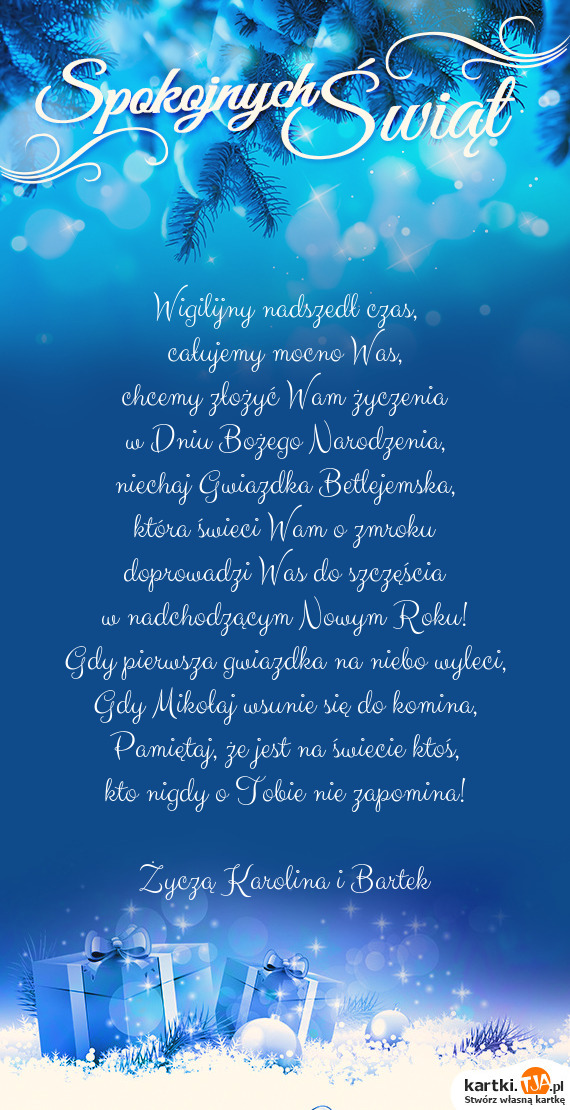 Spokojnych Świąt
Wigilijny nadszedł czas,
całujemy mocno Was,
chcemy złożyć Wam życzenia
w Dniu Bożego Narodzenia,
niechaj Gwiazdka Betlejemska,
która świeci Wam o zmroku
doprowadzi Was do szczęścia
w nadchodzącym Nowym Roku!
Gdy pierwsza gwiazdka na niebo wyleci,
Gdy Mikołaj wsunie się do komina,
Pamiętaj, że jest na świecie ktoś,
kto nigdy o Tobie nie zapomina!
Życzą Karolina i Bartek
kartki.TJA.pl
Stwórz własną kartkę